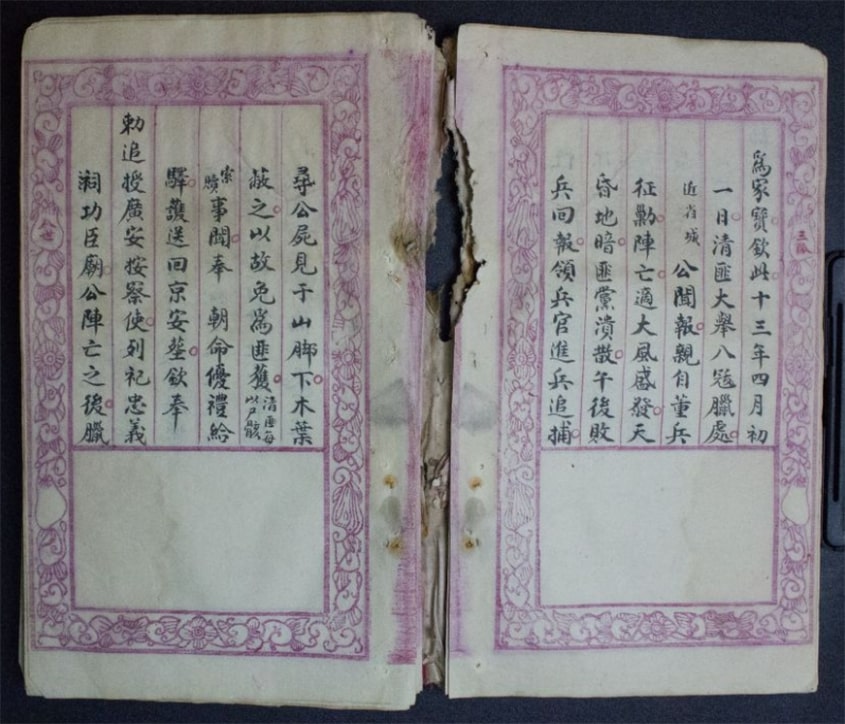 爲家寶欽此十三年四月初
一日清匪大舉入寇臘處
近省城 公聞報親自董兵
征勦陣亡適大風盛發天
昏地暗匪黨潰散午後敗
兵回報領兵官進兵追捕
尋公屍見于山脚下木葉
蔽之以故免爲匪獲清匪每以尸骸
索贖事聞奉 朝命優禮給
驛護送回京安塟欽奉
勅追授廣安按察使列祀忠義
祠功臣廟公陣亡之後臘